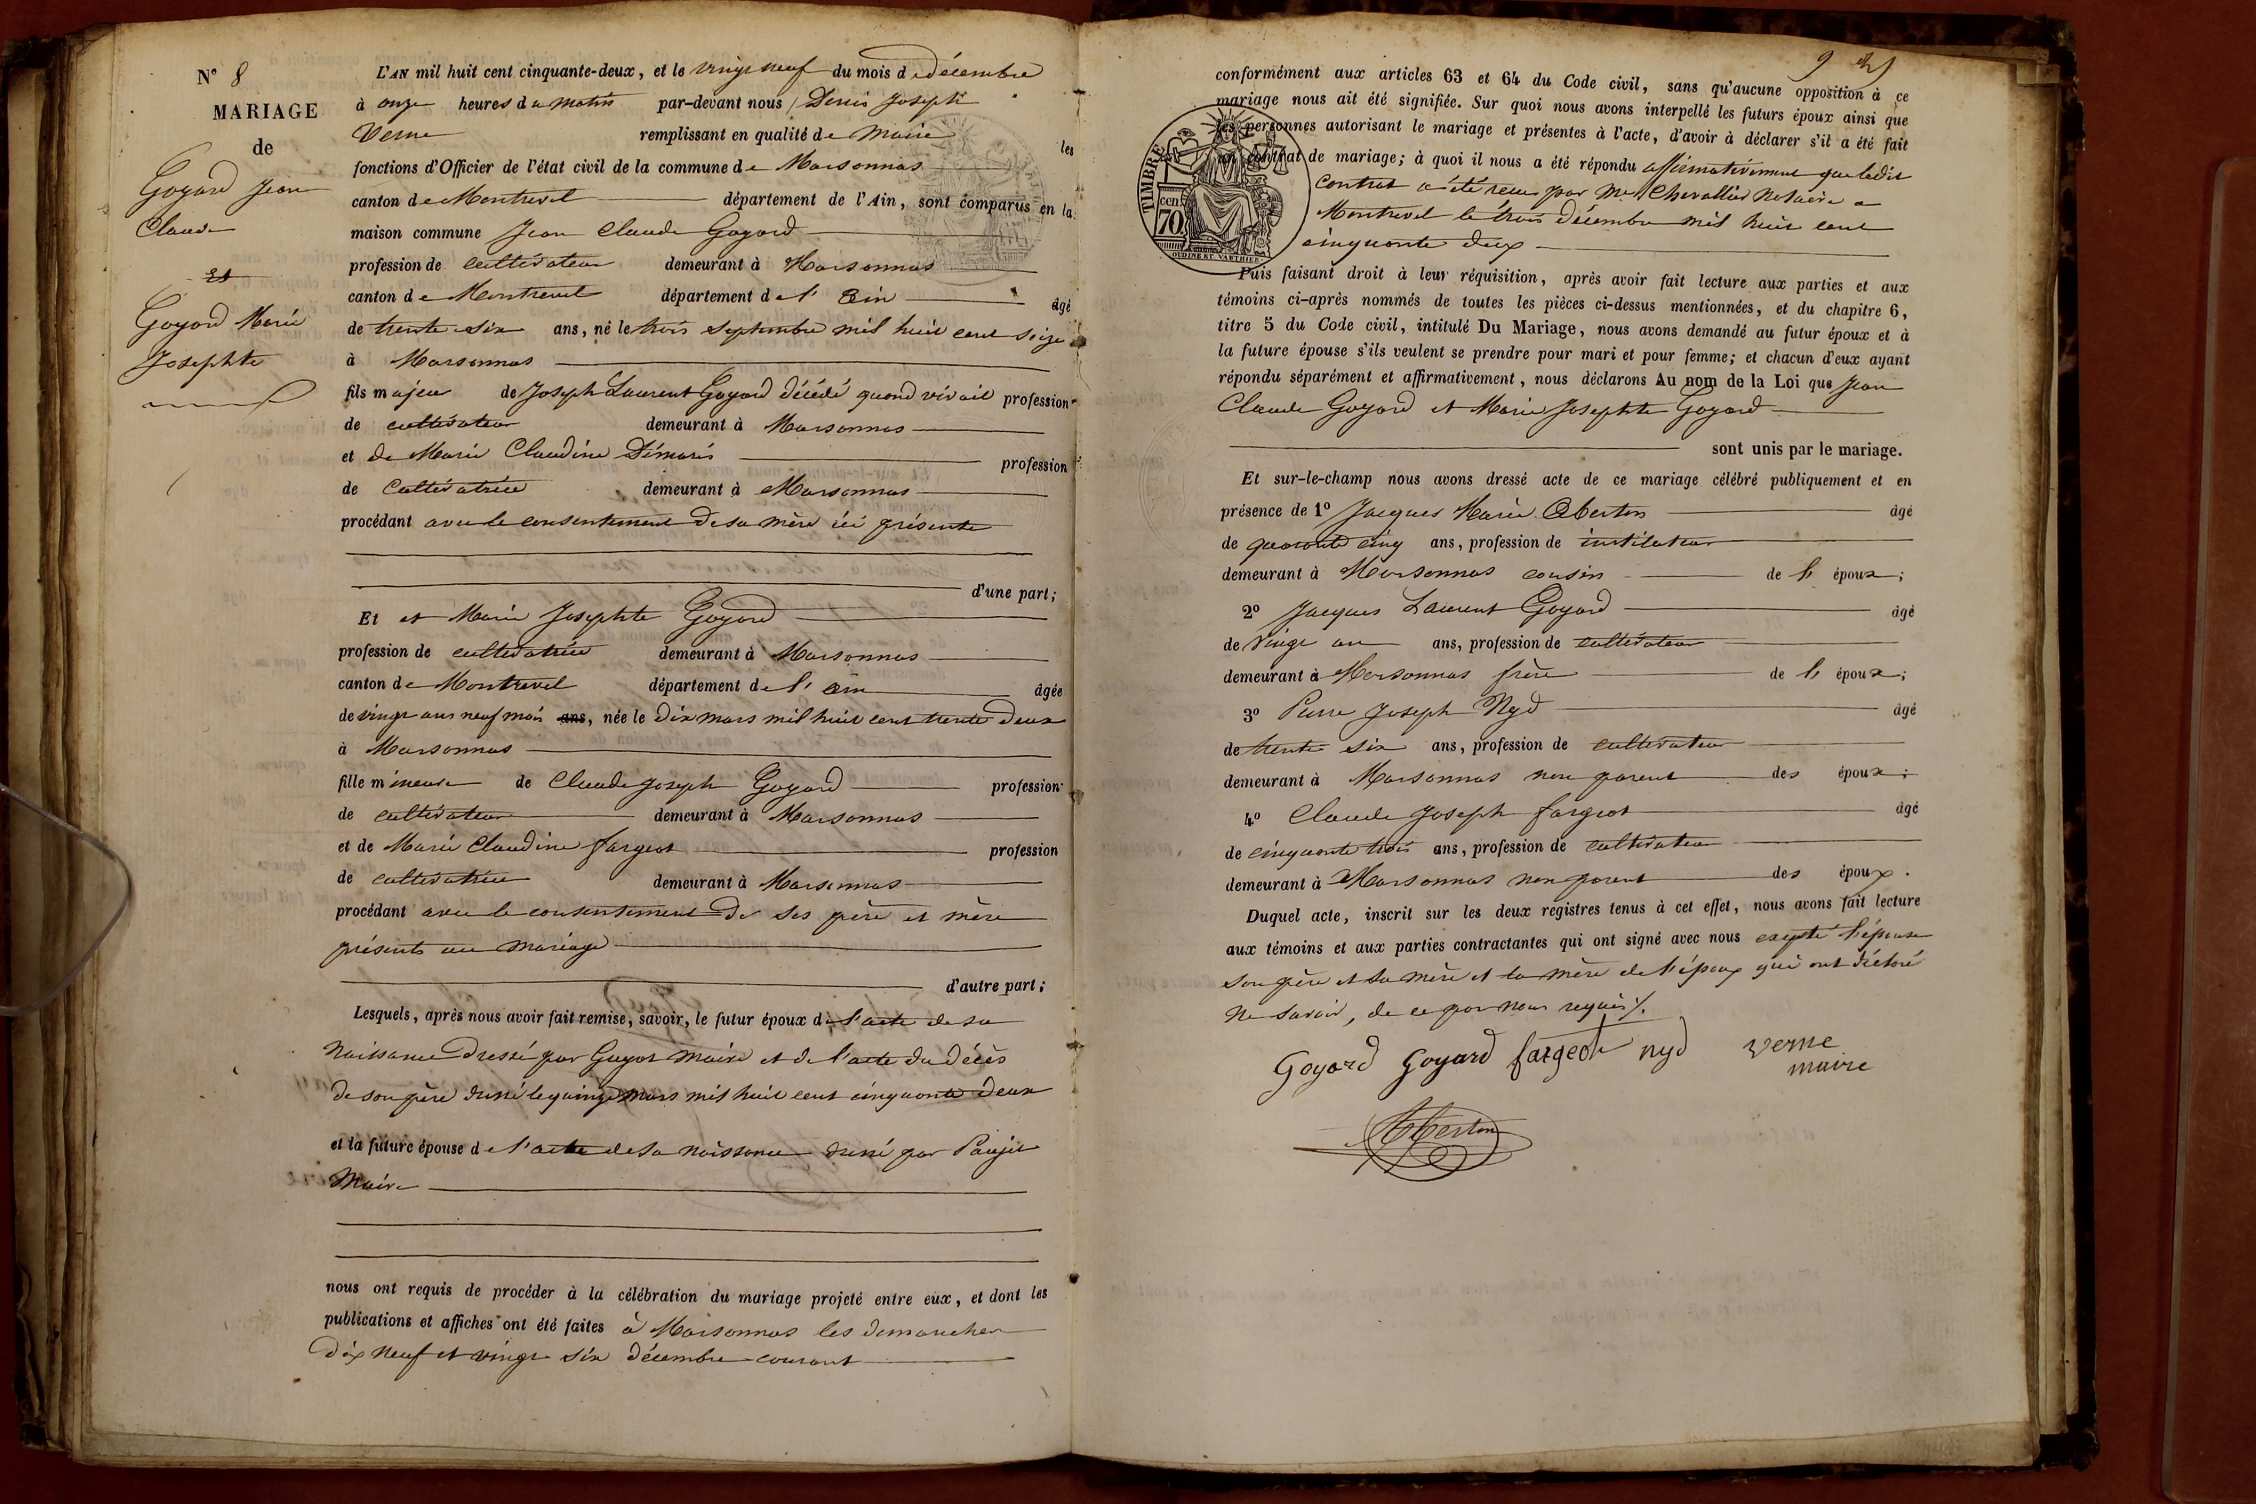 N° 8
MARIAGE
de
Goyard Jean
Claude
et
Goyard Marie
Josephte
L'AN mil huit cent cinquante-deux, et le vingt neuf du mois de décembre
à onze heures du matin par-devant nous Denis Joseph
Verne remplissant en qualité de Maire les
fonctions d'Officier de l'état civil de la commune de Marsonnas
canton de Montrevel département de l'Ain, sont comparus en la
maison commune Jean Claude Goyard
profession de cultivateur demeurant à Marsonnas
canton de Montrevel département de l'Ain âgé
de trente six ans, né le trois septembre mil huit cent seize
à Marsonnas
fils majeur de Joseph Laurent Goyard décédé quand vivait profession
de cultivateur demeurant à Marsonnas
et de Marie Claudine Démaris profession
de Cultivatrice demeurant à Marsonnas
procédant avec le consentement de sa mère ici présente
d'une part;
Et et Marie Josephte Goyard
profession de cultivatrice demeurant à Marsonnas
canton de Montrevel département de l'ain âgée
de vingt ans neuf mois ans, née le dix mars mil huit cent trente deux
à Marsonnas
fille mineure de Claude Joseph Goyard profession
de cultivateur demeurant à Marsonnas
et de Marie Claudine fargeot profession
de cultivatrice demeurant à Marsonnas
procédant avec le consentement de ses père et mère
présents au mariage
d'autre part;
Lesquels, après nous avoir fait remise, savoir, le futur époux de l'acte de sa
Naissance dressé par Guyot Maire et de l'acte du décès
de son père dressé le quinze mars mil huit cent cinquante deux
et la future épouse de l'acte de sa naissance dressé par Paujet
Maire
nous ont requis de procéder à la célébration du mariage projeté entre eux, et dont les
publications et affiches ont été faites à Marsonnas les dimanches
dix neuf et vingt six décembre courant
9
conformément aux articles 63 et 64 du Code civil, sans qu'aucune opposition à ce
mariage nous ait été signifiée. Sur quoi nous avons interpellé les futurs époux ainsi que
les personnes autorisant le mariage et présentes à l'acte, d'avoir à déclarer s'il a été fait
un contrat de mariage; à quoi il nous a été répondu affirmativement que ledit
contrat a été reçu par Me Chevallier Notaire a
Montrevel le trois décembre mil huit cent
cinquante deux
TIMBRE
70 cen
OUDINE ET VARTHIER
Puis faisant droit à leur réquisition, après avoir fait lecture aux parties et aux
témoins ci-après nommés de toutes les pièces ci-dessus mentionnées, et du chapitre 6,
titre 5 du Code civil, intitulé Du Mariage, nous avons demandé au futur époux et à
la future épouse s'ils veulent se prendre pour mari et pour femme; et chacun d'eux ayant
répondu séparément et affirmativement, nous déclarons Au nom de la Loi que Jean
Claude Goyard et Marie Josephte Goyard
sont unis par le mariage.
Et sur-le-champ nous avons dressé acte de ce mariage célébré publiquement et en
présence de 1° Jacques Marie Cberton âgé
de quarante cinq ans, profession de instituteur
demeurant à Marsonnas cousin de l' époux;
2° Jacques Laurent Goyard âgé
de vingt un ans, profession de cultivateur
demeurant à Marsonnas frère de l' époux;
3° Pierre Joseph Nyd âgé
de trente six ans, profession de cultivateur
demeurant à Marsonnas non parent des époux;
4° Claude Joseph fargeot âgé
de cinquante trois ans, profession de cultivateur
demeurant à Marsonnas non parent des époux.
Duquel acte, inscrit sur les deux registres tenus à cet effet, nous avons fait lecture
aux témoins et aux parties contractantes qui ont signé avec nous excepté l'épouse
son père et sa mère et la mère de l'époux qui ont déclaré
ne savoir, de ce par nous requis ./.
Goyard Goyard fargeot nyd verne
maire